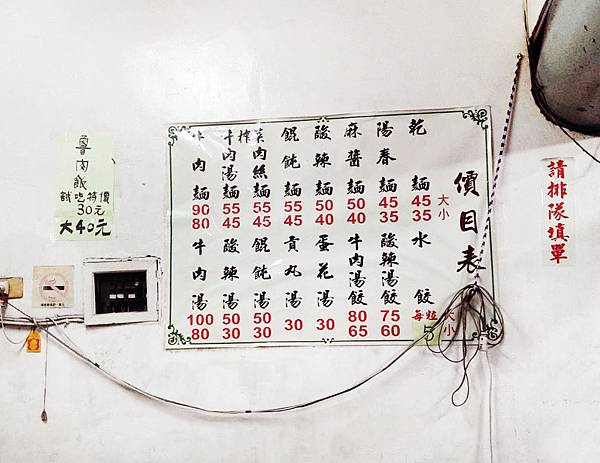 請排隊填單
價目表
大
小
乾麵 45 35
陽春麵 45 35
麻醬麵 50 40
酸辣麵 50 40
餛飩麵 55 45
榨菜肉絲麵 55 45
牛肉湯麵 55 45
牛肉麵 90 80
大
小
水餃 每粒 5
酸辣湯餃 75 60
牛肉湯餃 80 65
蛋花湯 30
貢丸湯 30
餛飩湯 50 30
酸辣湯 50 30
牛肉湯 100 80
魯肉飯
試吃特價
30元
大40元